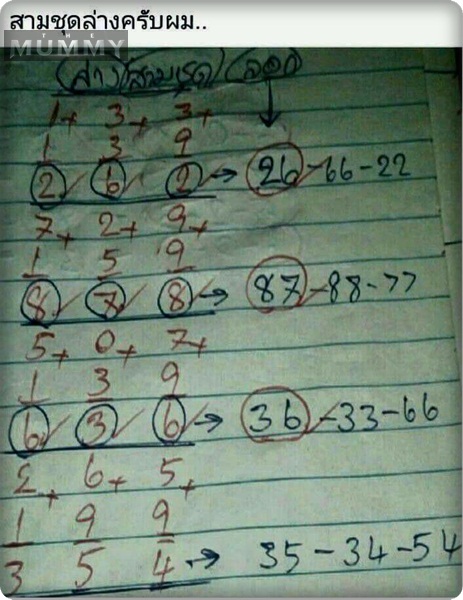 สามชุดล่างครับผม..
MUMMY
(ล่าง/สามชุด) (ออก)
1+ 3+ 3+
1 3 9
2 6 2 → 26-66-22
7+ 2+ 9+
1 5 9
8 7 8 → 87-88-77
5+ 0+ 7+
1 3 9
6 3 6 → 36-33-66
2+ 6+ 5+
1 9 9
3 5 4 → 35-34-54